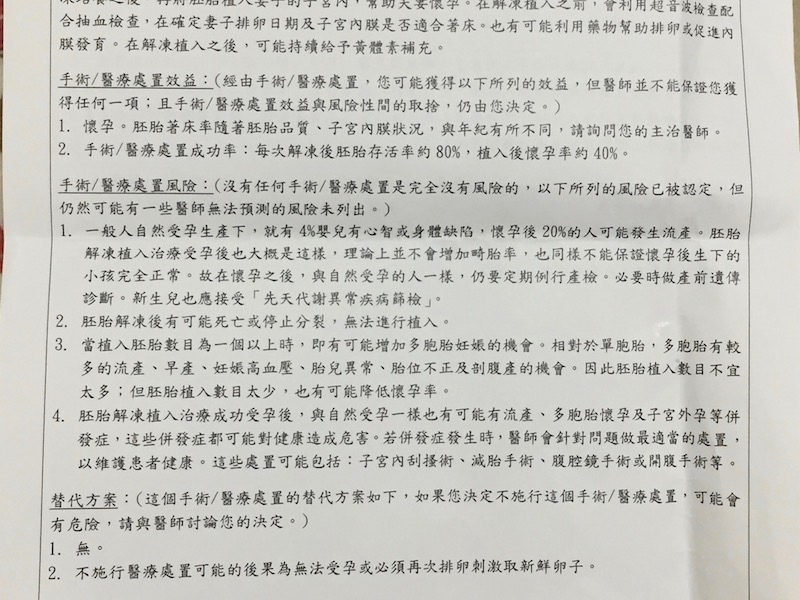 合抽血檢查,在確定妻子排卵日期及子宮內膜是否適合著床。也有可能利用藥物幫助排卵或促進內
膜發育。在解凍植入之後,可能持續給予黃體素補充。
手術/醫療處置效益:(經由手術/醫療處置,您可能獲得以下所列的效益,但醫師並不能保證您獲
得任何一項;且手術/醫療處置效益與風險性間的取捨,仍由您決定。)
1. 懷孕。胚胎著床率隨著胚胎品質、子宮內膜狀況,與年紀有所不同,請詢問您的主治醫師。
2. 手術/醫療處置成功率:每次解凍後胚胎存活率約 80%,植入後懷孕率約 40%。
手術/醫療處置風險:(沒有任何手術/醫療處置是完全沒有風險的,以下所列的風險已被認定,但
仍然可能有一些醫師無法預測的風險未列出。)
1. 一般人自然受孕生產下,就有 4%嬰兒有心智或身體缺陷,懷孕後 20%的人可能發生流產。胚胎
解凍植入治療受孕後也大概是這樣,理論上並不會增加畸胎率,也同樣不能保證懷孕後生下的
小孩完全正常。故在懷孕之後,與自然受孕的人一樣,仍要定期例行產檢。必要時做產前遺傳
診斷。新生兒也應接受「先天代謝異常疾病篩檢」。
2. 胚胎解凍後有可能死亡或停止分裂,無法進行植入。
3. 當植入胚胎數目為一個以上時,即有可能增加多胞胎妊娠的機會。相對於單胞胎,多胞胎有較
多的流產、早產、妊娠高血壓、胎兒異常、胎位不正及剖腹產的機會。因此胚胎植入數目不宜
太多;但胚胎植入數目太少,也有可能降低懷孕率。
4. 胚胎解凍植入治療成功受孕後,與自然受孕一樣也有可能有流產、多胞胎懷孕及子宮外孕等併
發症,這些併發症都可能對健康造成危害。若併發症發生時,醫師會針對問題做最適當的處置,
以維護患者健康。這些處置可能包括:子宮內刮搔術、減胎手術、腹腔鏡手術或開腹手術等。
替代方案:(這個手術/醫療處置的替代方案如下,如果您決定不施行這個手術/醫療處置,可能會
有危險,請與醫師討論您的決定。)
1. 無。
2. 不施行醫療處置可能的後果為無法受孕或必須再次排卵刺激取新鮮卵子。